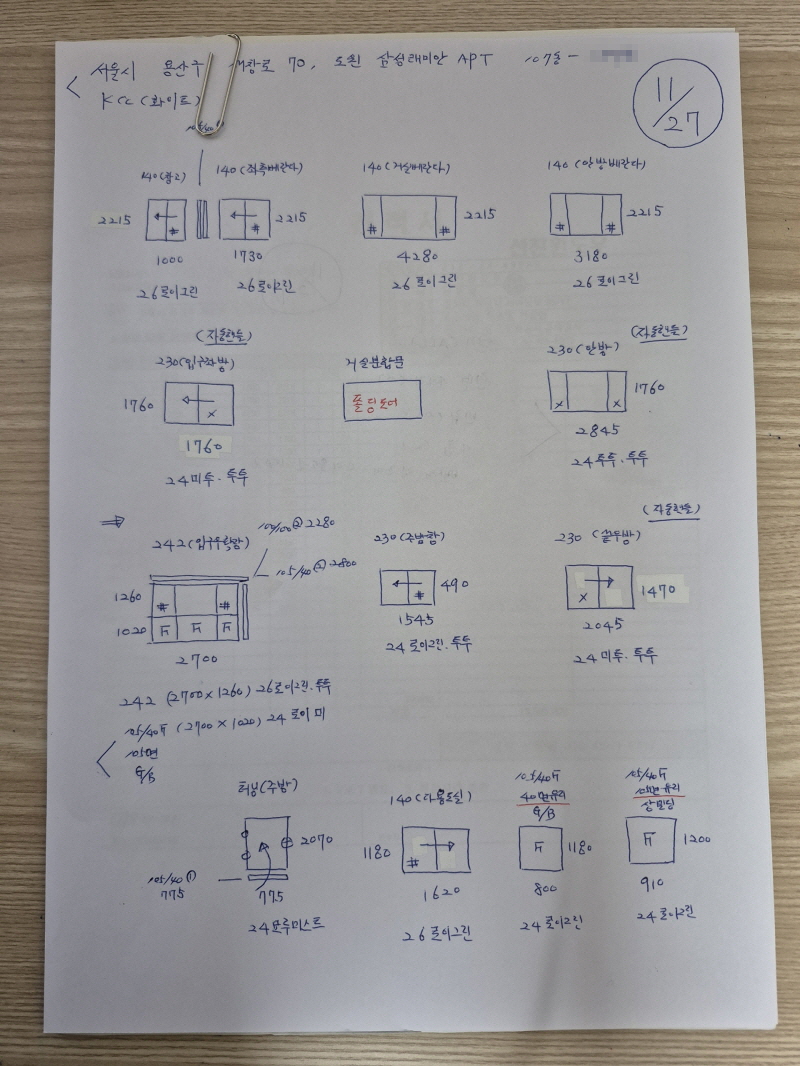 서울시 용산구 새창로 70, 도원 삼성래미안 APT 107동 -
KCC (화이트)
11/27
140(창고) 140(좌측베란다) 140(거실베란다) 140(안방베란다)
2215 # # 2215 # # 2215 # # 2215
1000 1730 4280 3180
26 로이그린 26 로이그린 26 로이그린 26 로이그린
(자동핸들) (자동핸들)
230(입구좌방) 거실분합문 230(안방)
1760 x 폴딩도어 x x 1760
1760 2845
24 미투.투투 24 투투.투투
(자동핸들)
242(입구우측방) 100/100 ② 2280 230(주방창) 230(끝방)
105/40 ② 2800
1260 # # # 490 x 1470
1020 F F F 1545 2045
2700 24 로이그린.투투 24 미투.투투
242 (2700x1260) 26로이그린.투투
105/40 F (2700x1020) 24 로이 미
105면
G/B
터닝(주방) 140(다용도실) 105/40 F 105/40 F
40면유리 105면유리
G/B 상몰딩
2070 1180 # F 1180 F 1200
105/40 ①
775 775 1620 800 910
24 모루미스트 26 로이그린 24 로이그린 24 로이그린